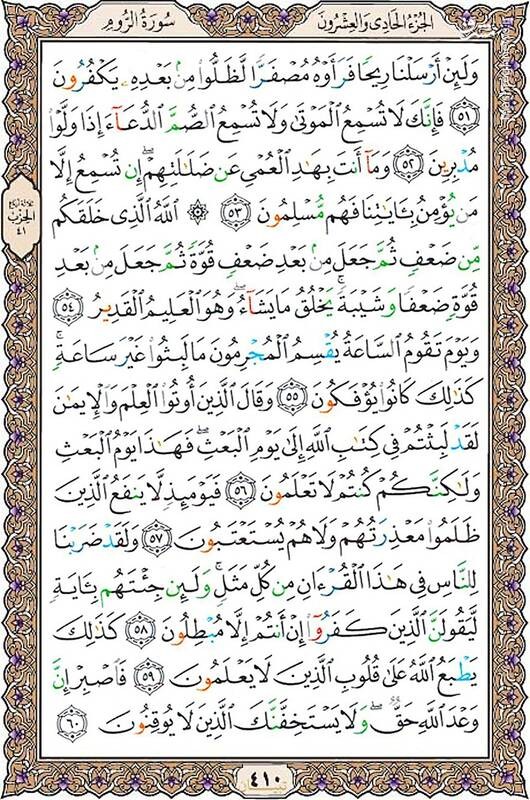 الجُزءُ الحَادِى وَالعِشرُونَ
سُورَةُ الرُّومِ
وَلَئِنْ أَرْسَلْنَا رِيحًا فَرَأَوْهُ مُصْفَرًّا لَّظَلُّوا۟ مِنۢ بَعْدِهِۦ يَكْفُرُونَ
٥١ فَإِنَّكَ لَا تُسْمِعُ الْمَوْتَىٰ وَلَا تُسْمِعُ الصُّمَّ الدُّعَآءَ إِذَا وَلَّوْا۟
مُدْبِرِينَ ٥٢ وَمَآ أَنتَ بِهَٰدِ الْعُمْىِ عَن ضَلَٰلَتِهِمْ ۖ إِن تُسْمِعُ إِلَّا
مَن يُؤْمِنُ بِـَٔايَٰتِنَا فَهُم مُّسْلِمُونَ ٥٣ ۞ اللَّهُ الَّذِى خَلَقَكُم
مِّن ضَعْفٍ ثُمَّ جَعَلَ مِنۢ بَعْدِ ضَعْفٍ قُوَّةً ثُمَّ جَعَلَ مِنۢ بَعْدِ
قُوَّةٍ ضَعْفًا وَشَيْبَةً ۚ يَخْلُقُ مَا يَشَآءُ ۖ وَهُوَ الْعَلِيمُ الْقَدِيرُ ٥٤
وَيَوْمَ تَقُومُ السَّاعَةُ يُقْسِمُ الْمُجْرِمُونَ مَا لَبِثُوا۟ غَيْرَ سَاعَةٍ ۚ
كَذَٰلِكَ كَانُوا۟ يُؤْفَكُونَ ٥٥ وَقَالَ الَّذِينَ أُوتُوا۟ الْعِلْمَ وَالْإِيمَٰنَ
لَقَدْ لَبِثْتُمْ فِى كِتَٰبِ اللَّهِ إِلَىٰ يَوْمِ الْبَعْثِ ۖ فَهَٰذَا يَوْمُ الْبَعْثِ
وَلَٰكِنَّكُمْ كُنتُمْ لَا تَعْلَمُونَ ٥٦ فَيَوْمَئِذٍ لَّا يَنفَعُ الَّذِينَ
ظَلَمُوا۟ مَعْذِرَتُهُمْ وَلَا هُمْ يُسْتَعْتَبُونَ ٥٧ وَلَقَدْ ضَرَبْنَا
لِلنَّاسِ فِى هَٰذَا الْقُرْءَانِ مِن كُلِّ مَثَلٍ ۚ وَلَئِن جِئْتَهُم بِـَٔايَةٍ
لَّيَقُولَنَّ الَّذِينَ كَفَرُوٓا۟ إِنْ أَنتُمْ إِلَّا مُبْطِلُونَ ٥٨ كَذَٰلِكَ
يَطْبَعُ اللَّهُ عَلَىٰ قُلُوبِ الَّذِينَ لَا يَعْلَمُونَ ٥٩ فَاصْبِرْ إِنَّ
وَعْدَ اللَّهِ حَقٌّ ۖ وَلَا يَسْتَخِفَّنَّكَ الَّذِينَ لَا يُوقِنُونَ ٦٠
الحِزْب
٤١
٤١٠